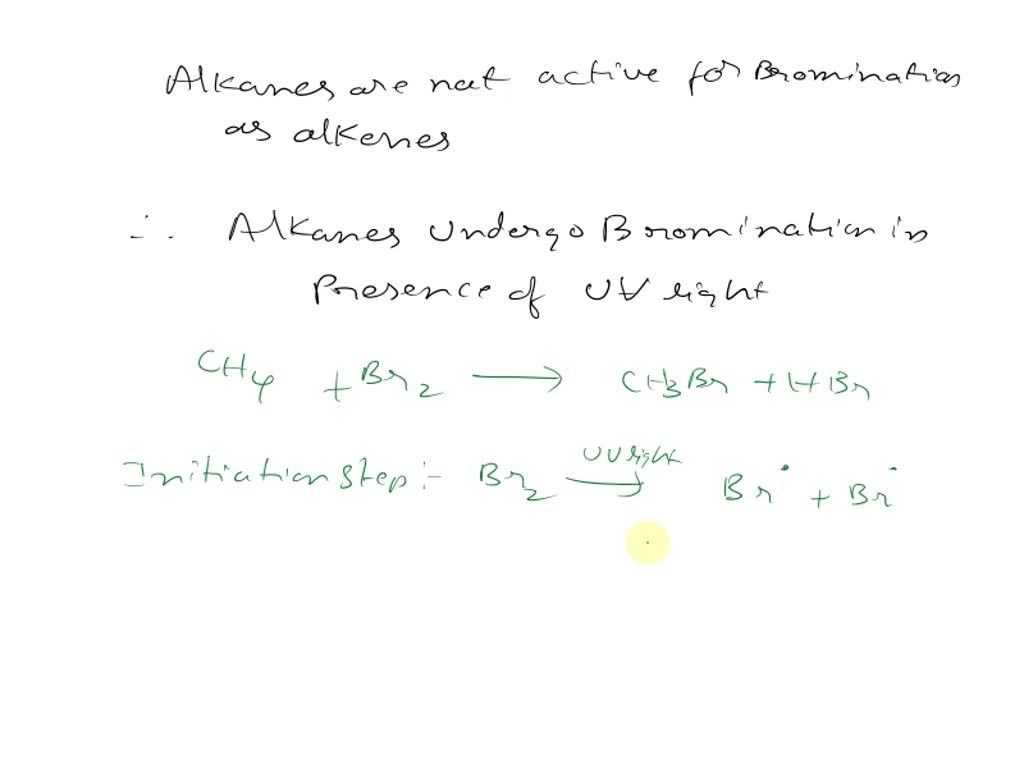 Alkanes are not active for Bromination
as alkenes
∴ Alkanes undergo Bromination in
Presence of UV light
CH4 + Br2 ⟶ CH3Br + HBr
Initiation step :- Br2 ⟶ UV light Br• + Br•